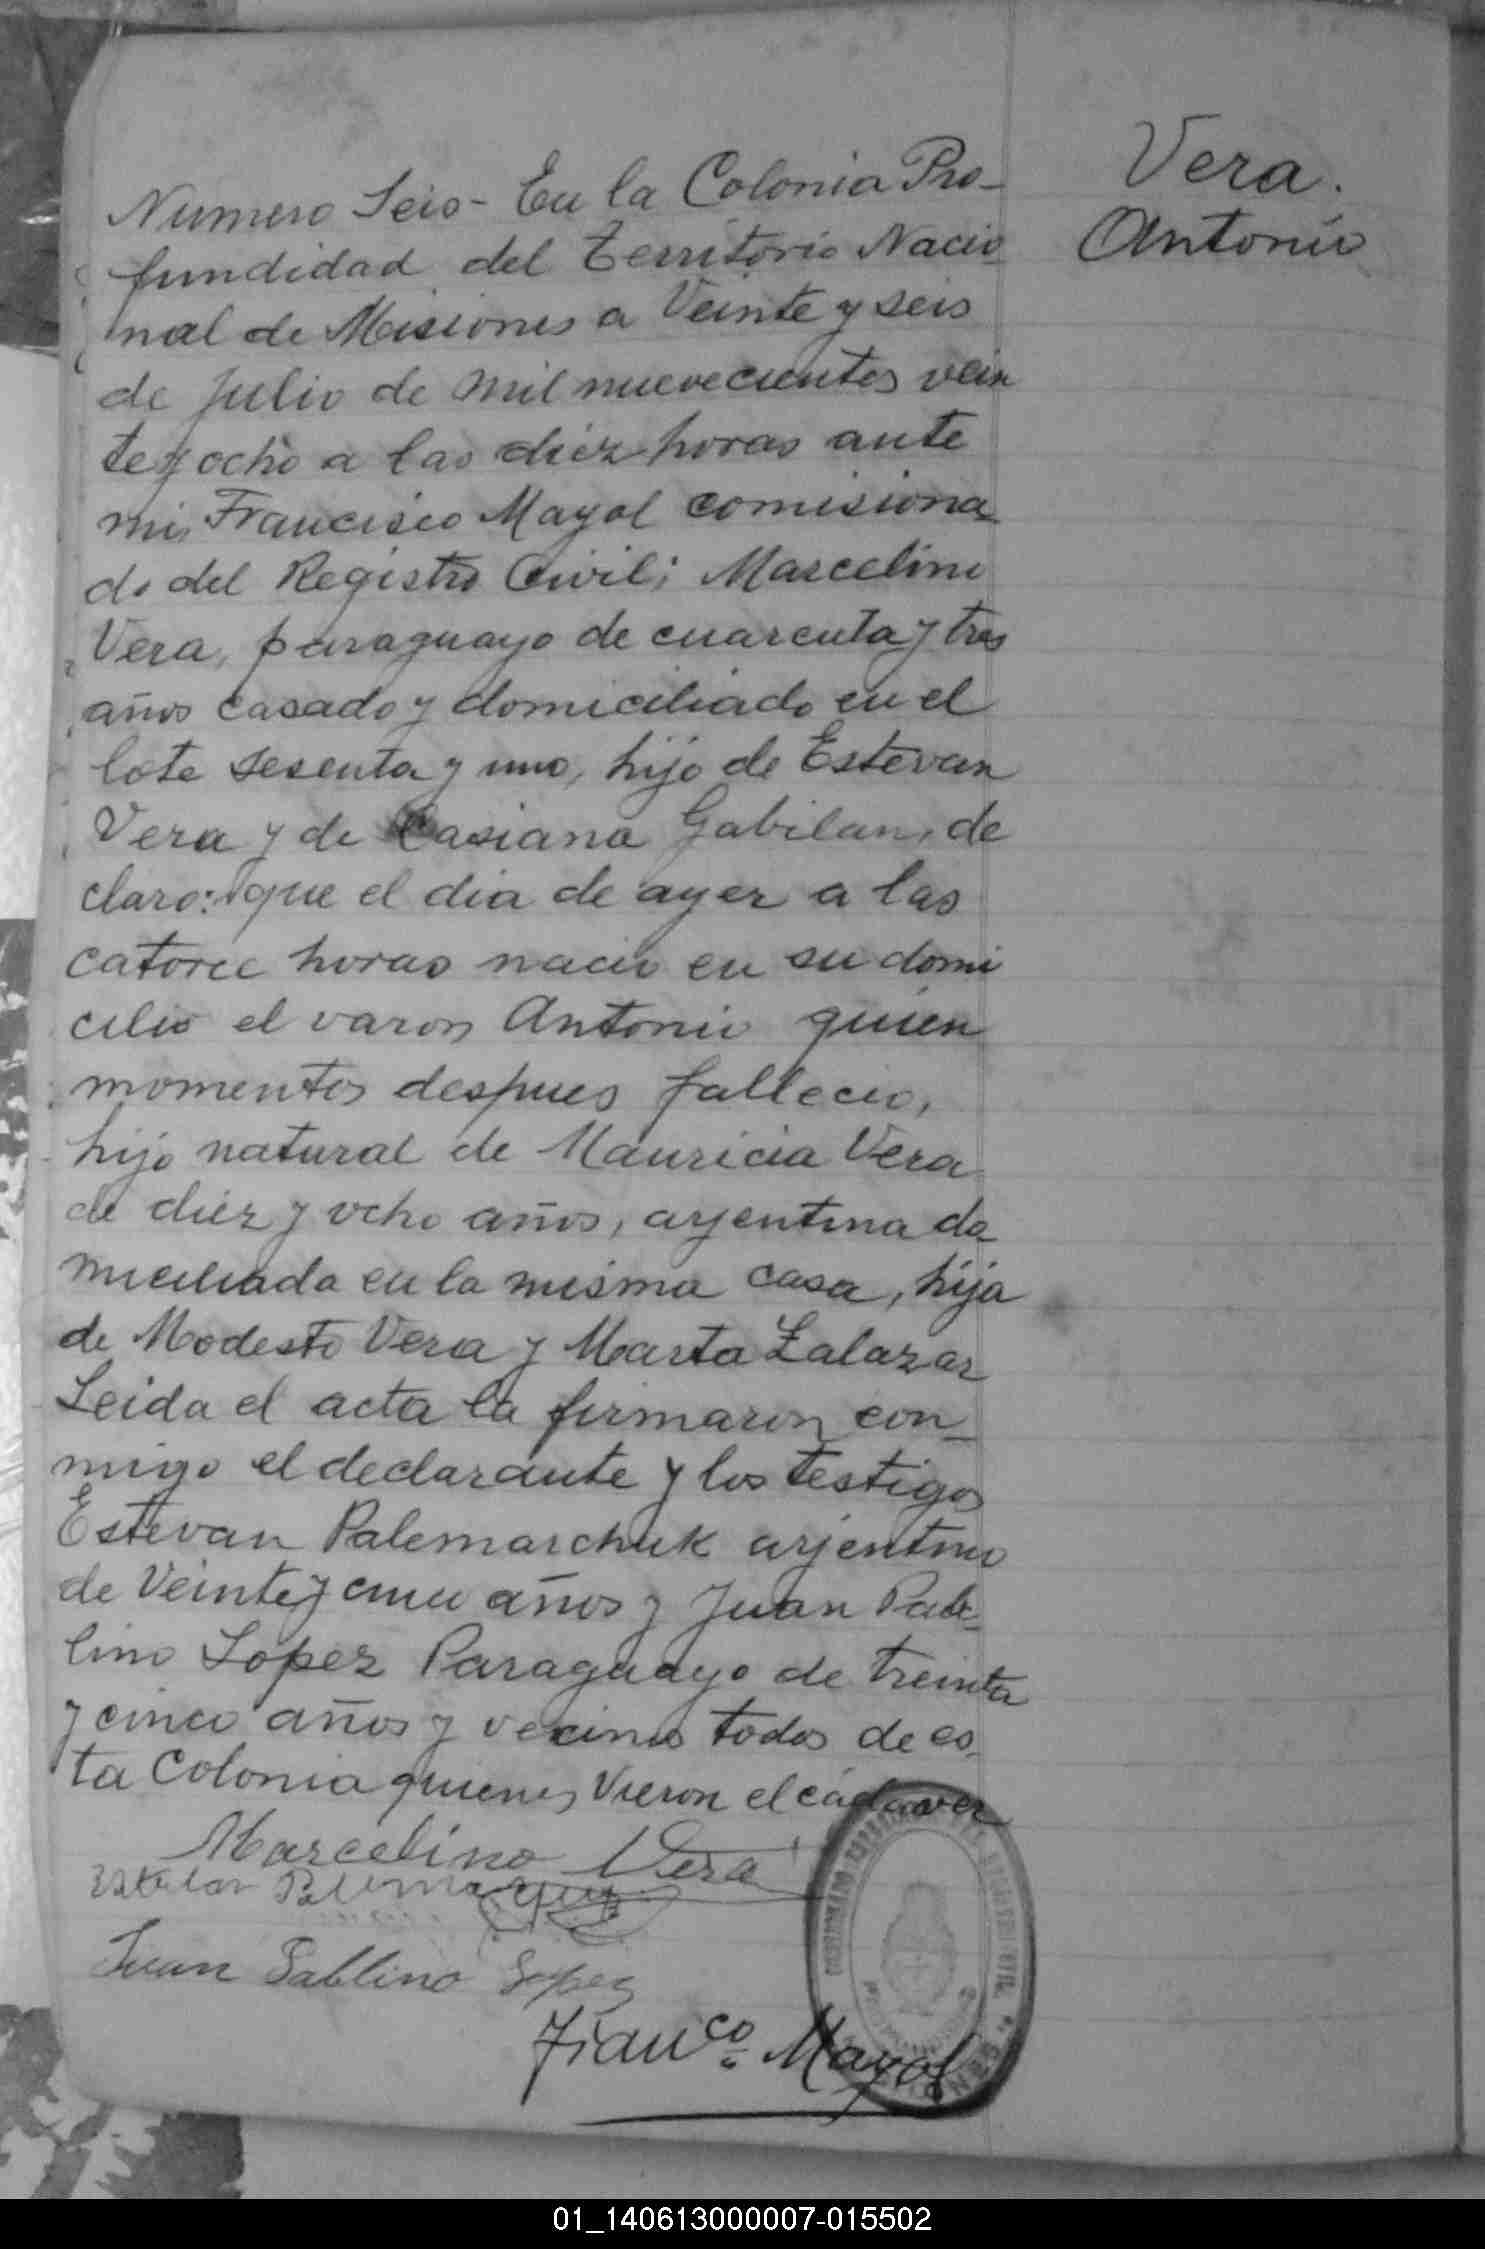 Vera.
Antonio
Numero Seis - En la Colonia Pro-
fundidad del Territorio Nacio
nal de Misiones a Veinte y seis
de julio de mil nuevecientos vein
te y ocho a las diéz horas ante
mi, Francisco Mayol comisiona
do del Registro Civil; Marcelino
Vera, paraguayo de cuarenta y tres
años casado y domiciliado en el
lote sesenta y uno, hijo de Estevan
Vera y de Casiana Gabilan, de
claro: que el dia de ayer a las
catorce horas nacio en su domi
cilio el varon Antonio quien
momentos despues fallecio,
hijo natural de Mauricia Vera
de diéz y ocho años, arjentina do
miciliada en la misma casa, hija
de Modesto Vera y Marta Zalazar
Leida el acta la firmaron con-
migo el declarante y los testigos
Estevan Palemarchuk arjentino
de Veinte y años y Juan Pab-
lino Lopez Paraguayo de treinta
y cinco años y vecinos todos de es-
ta Colonia quienes Vieron el cádaver
Marcelino Vera
Juan Pablino Lopez
Franco. Mayol
01_140613000007-015502